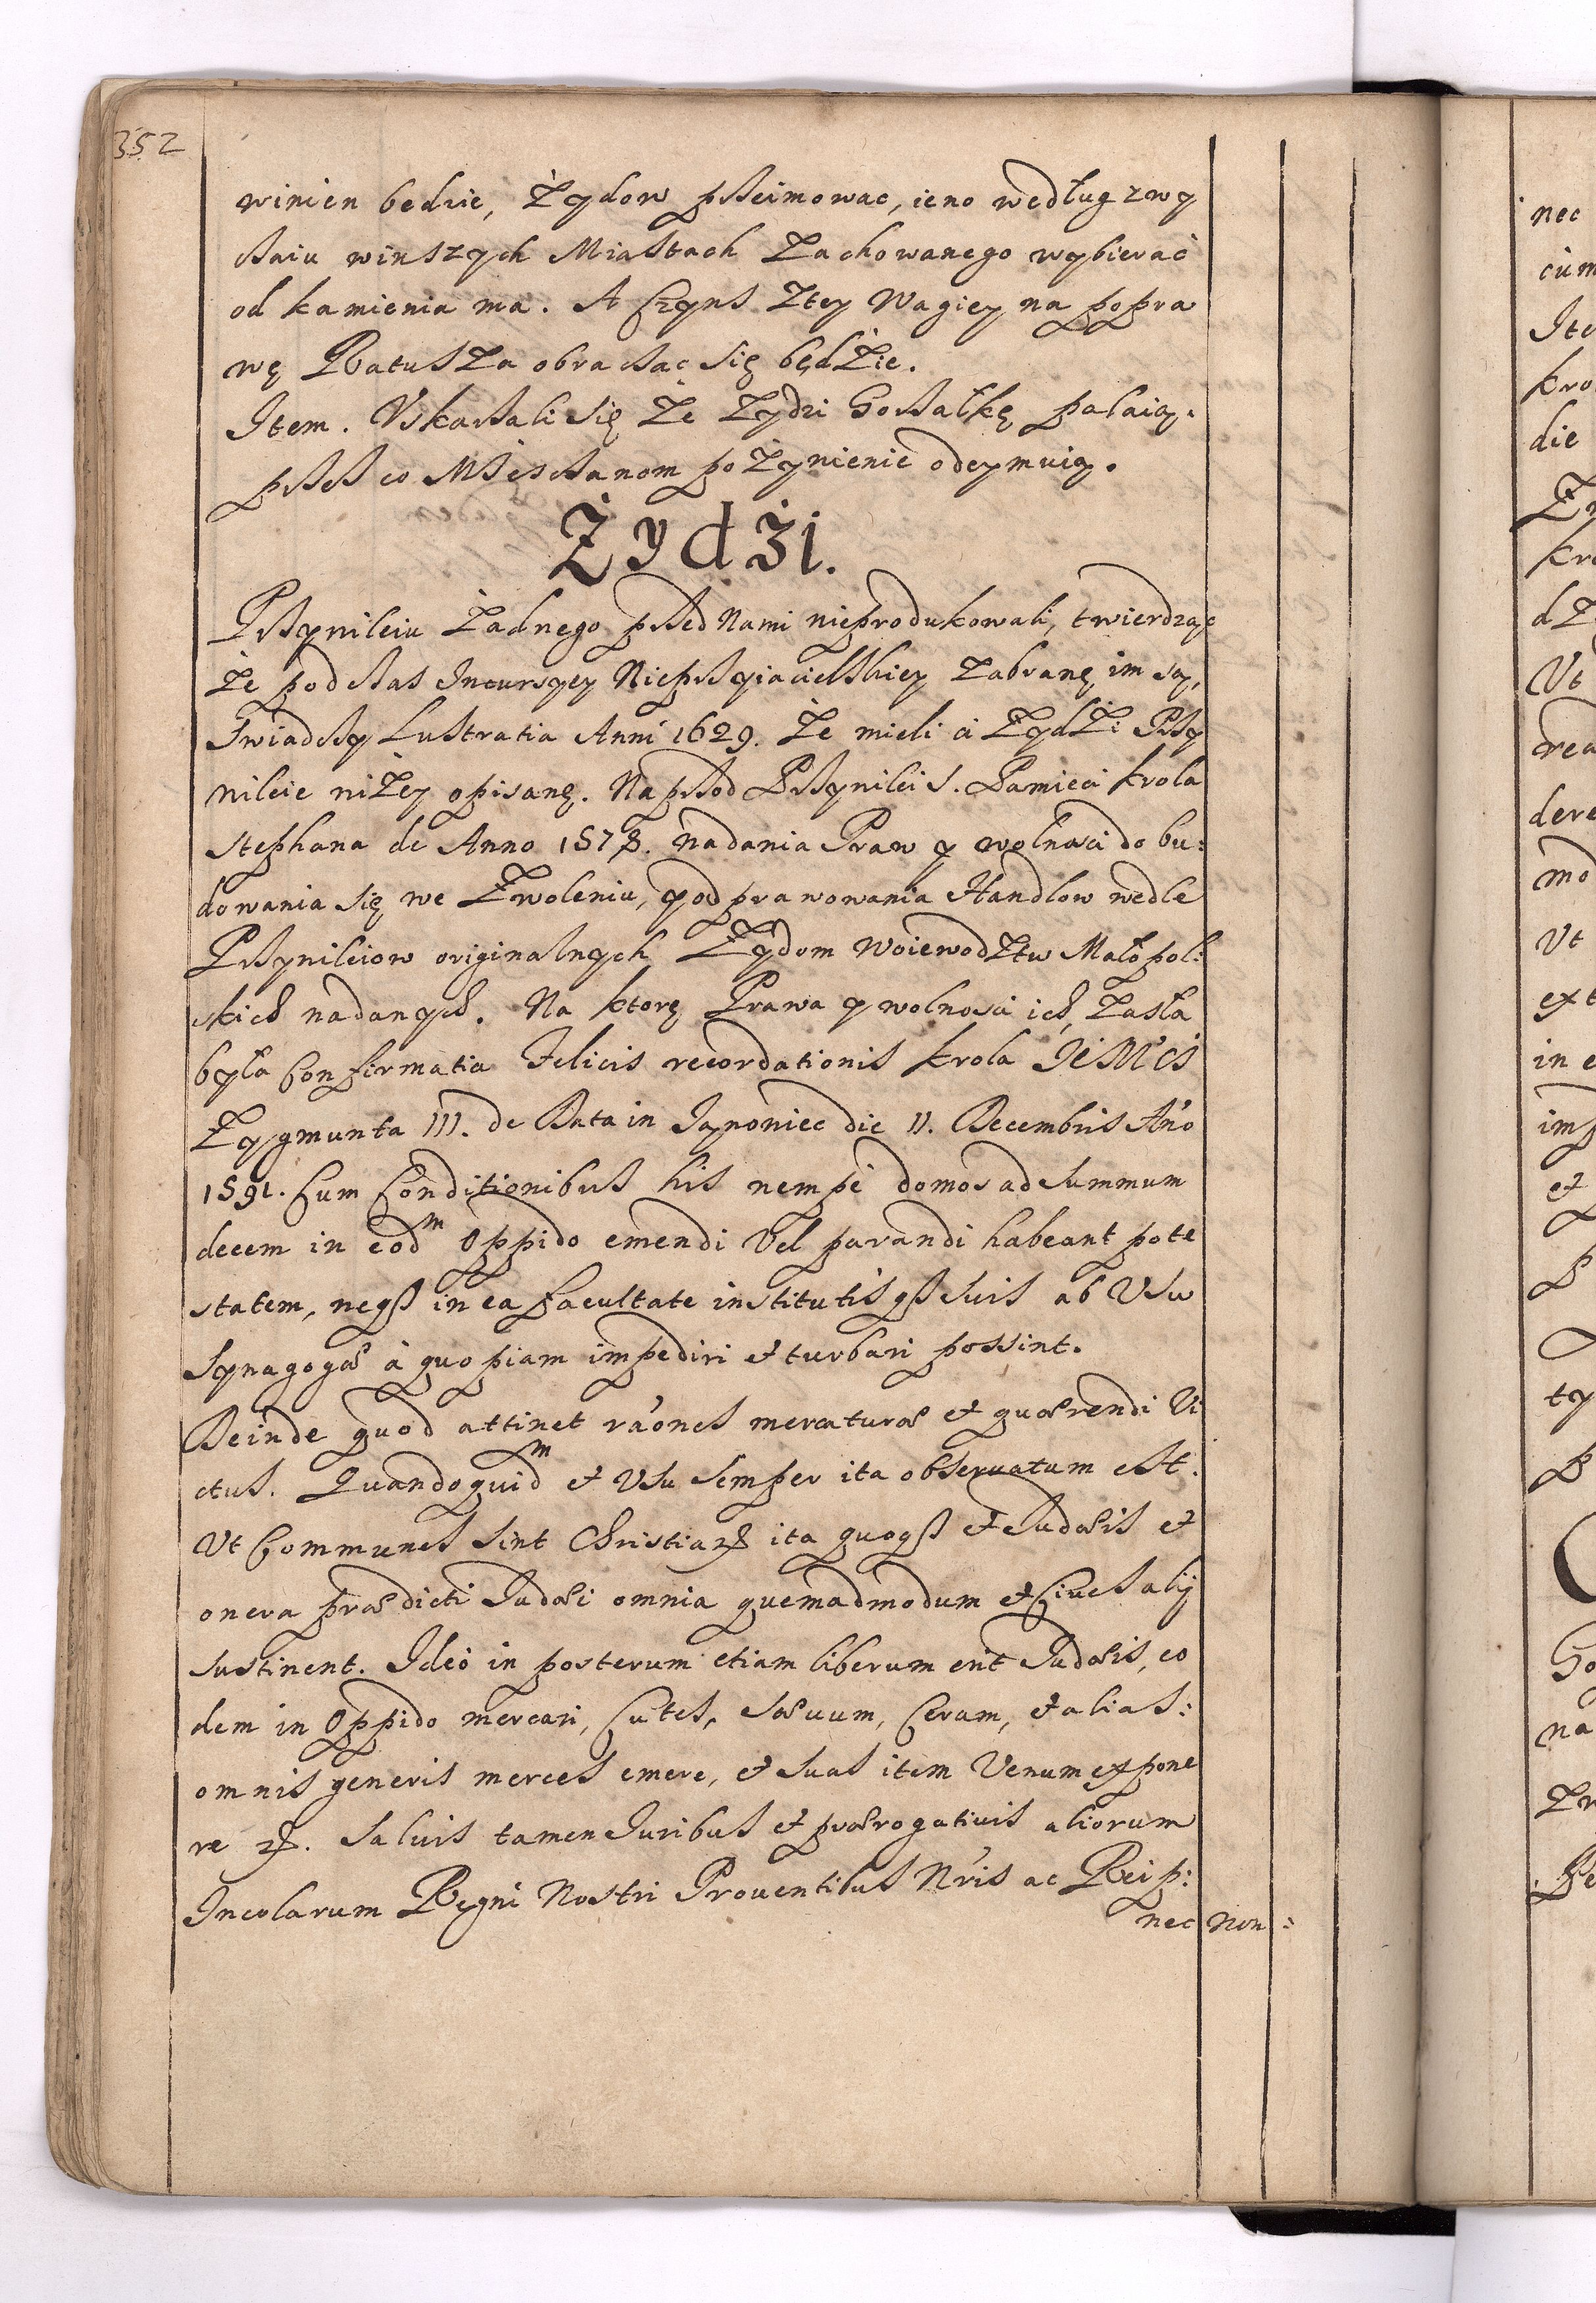 352
winien bedzie, Zydow przeimowac, ieno według zwy
czaiu winszych Miastach Zachowanego wybierać
od kamienia ma. A Czyns Ztey Wagiey na popra
wę RatusZa obraczac się będZie.
Item. Vskarzali się Ze Zydzi Gorzałkę palaią.
przez co Miesczanom poZynienie odeymuią.
Żydzi.
Przywileiu Zadnego przed Nami nieprodukowali, twierdząc
Ze podczas Incursyey Nieprzyiacielskiey Zabranę im są,
Swiadczy Lustratia Anni 1629. Ze mieli ci ZydZi Przy
wileie niZey opisanę. Naprzod Przywilei S. Pamieci Krola
Stephana de Anno 1578. nadania Praw y wolnosci do bu:
dowania się we Zwoleniu, y odprawowania Handlow wedle
Przywileiow originalnych Zydom WoiewodZtw Małopol:
skich nadanych. Na ktorę Prawa y wolnosci ich, Zasła
była Confirmatia Felicis recordationis Krola JĖMCi
Zygmunta III. de Data in Jaynoniec die 11. Decembris Ańo
1591. Cum Conditionibus his nempe domos ad Summum
decem in eodm Oppido emendi Vel parandi habeant pote
statem, neqȝ in ea facultate institutisqȝ Suis ab Vsu
Synagogæ à quopiam impediri et turbari possint.
Deinde quod attinet ra'ones mercaturæ et quærendi Vi
ctus. Quandoquidm et Vsu Semper ita obseruatum est.
Vt Communes Sint Christianis ita quoqȝ et Judæis et
onera prædicti Judæi omnia quemadmodum et Ciues alij
Sustinent. Ideo in posterum etiam liberum erit Judæis, eo
dem in Oppido mercari, Cutes, Sæuum, Ceram, et alias:
omnis generis merces emere, et Suas item Venum expone
re etc. Saluis tamen Juribus et prærogatiuis aliorum
Incolarum Regni Nostri Prouentibus Nris ac Reip:
nec non: